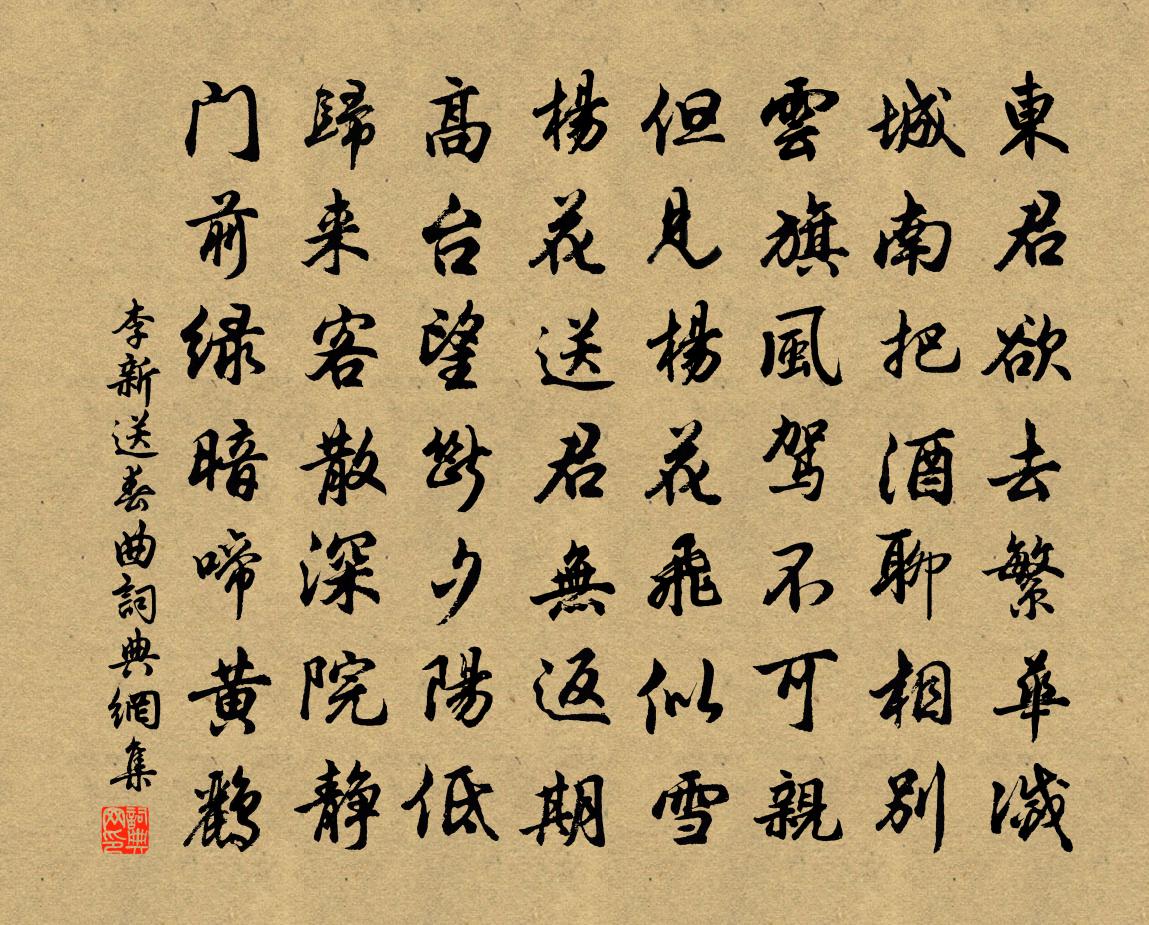 東君欲去繁華滅
城南把酒聊相别
雲旗風驾不可親
但見楊花飛似雪
楊花送君無返期
高台望斷夕陽低
歸来客散深院静
门前绿暗啼黄鸝
李新送春曲詞典網集
詞典网印